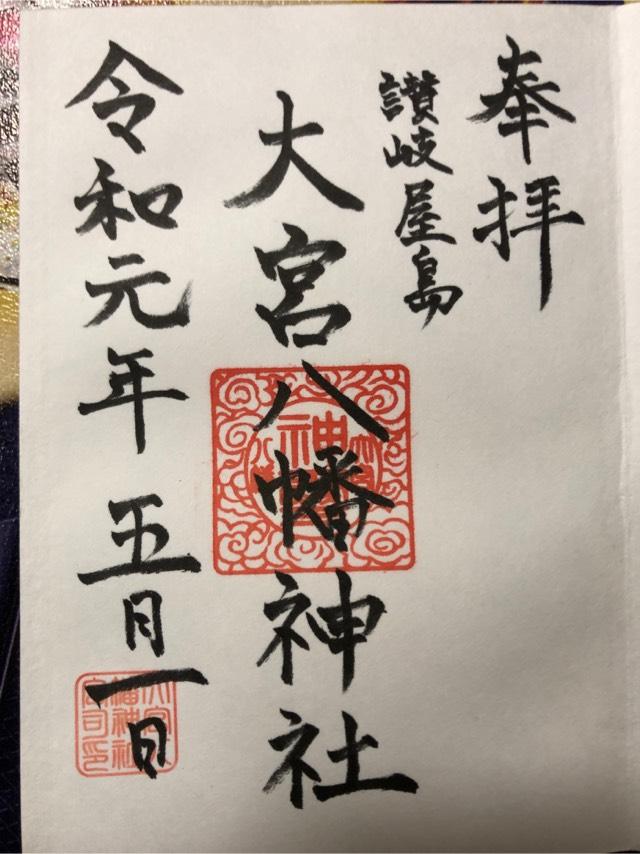 奉拝
讃岐屋島
大宮八幡神社
令和元年 五月一日
大宮八
幡神社
宮司印